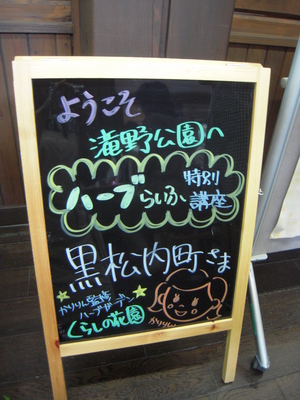 ようこそ
滝野公園へ
ハーブらいふ 特別講座
黒松内町さま
かりりん監修
ハーブガーデン
くらしの花園
かりりん